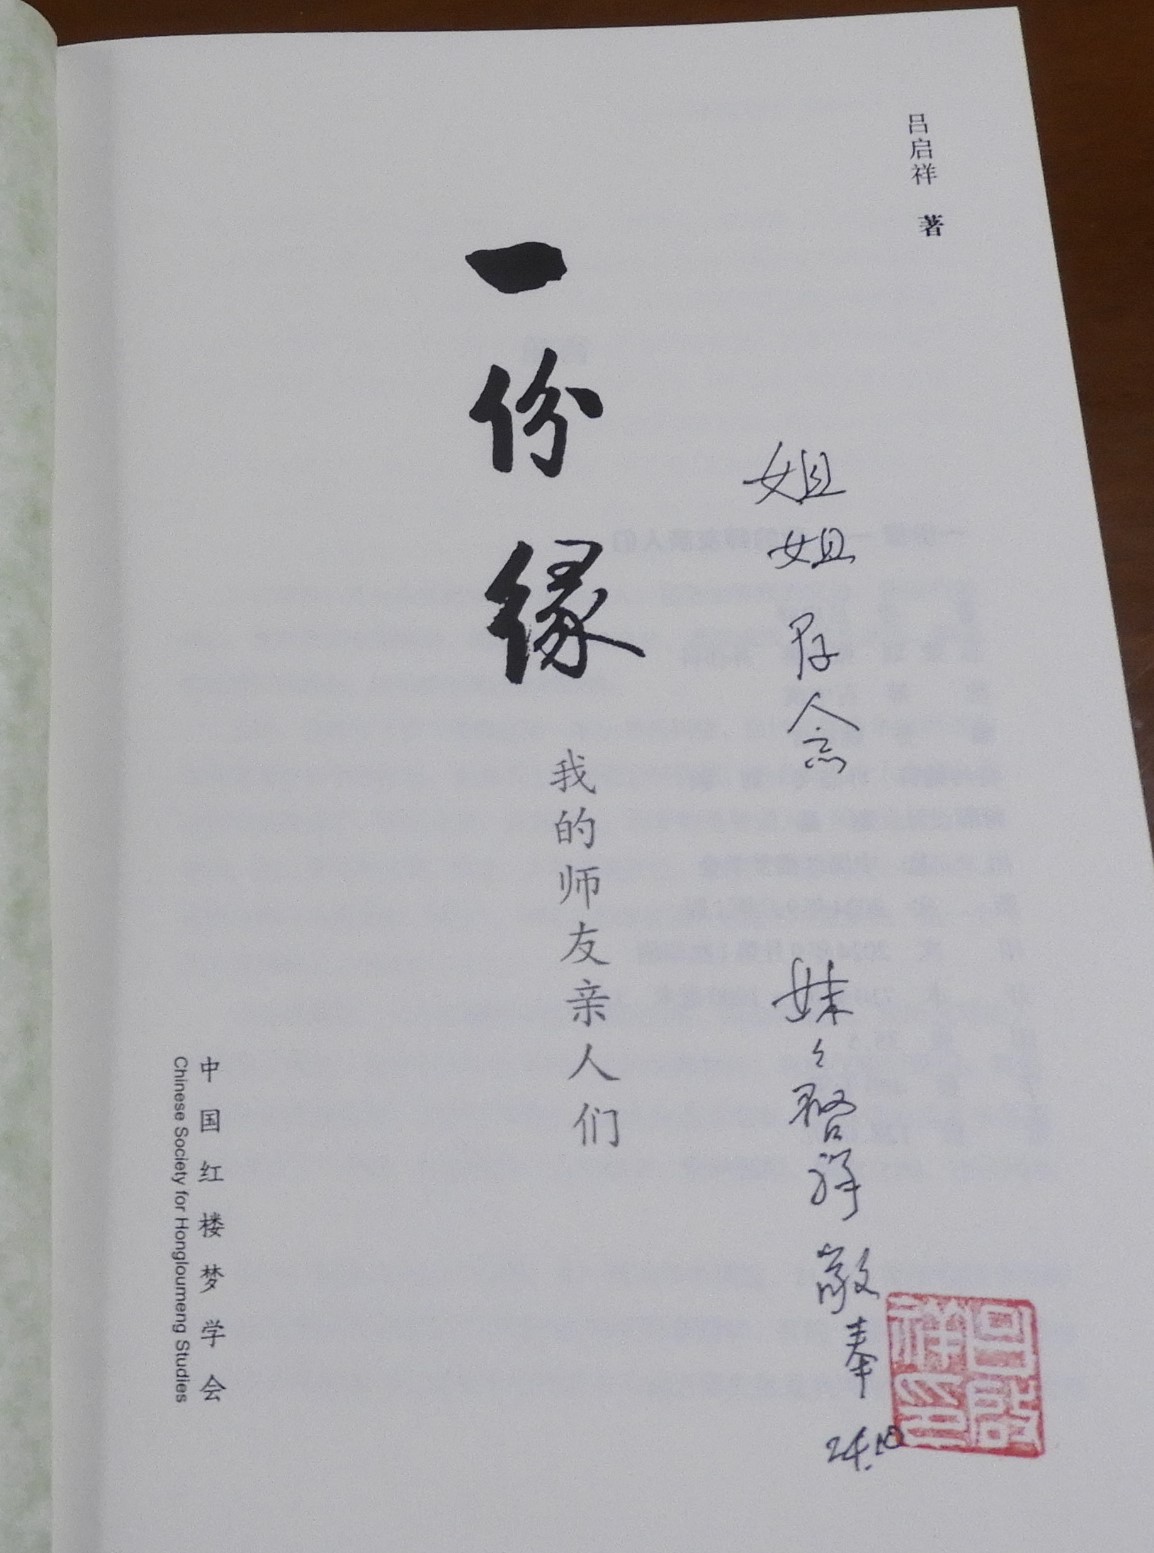 吕启祥 著
一份缘
我的师友亲人们
姐姐存念
妹々启祥敬奉
24.10
吕启祥印
中国红楼梦学会
Chinese Society for Hongloumeng Studies